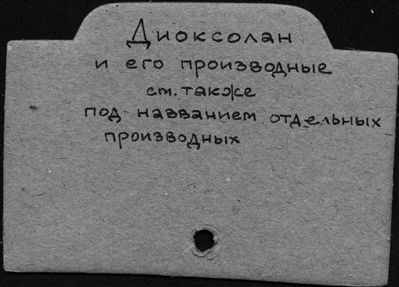 Диоксолан
и его производные
см. также
под названием отдельных
производных